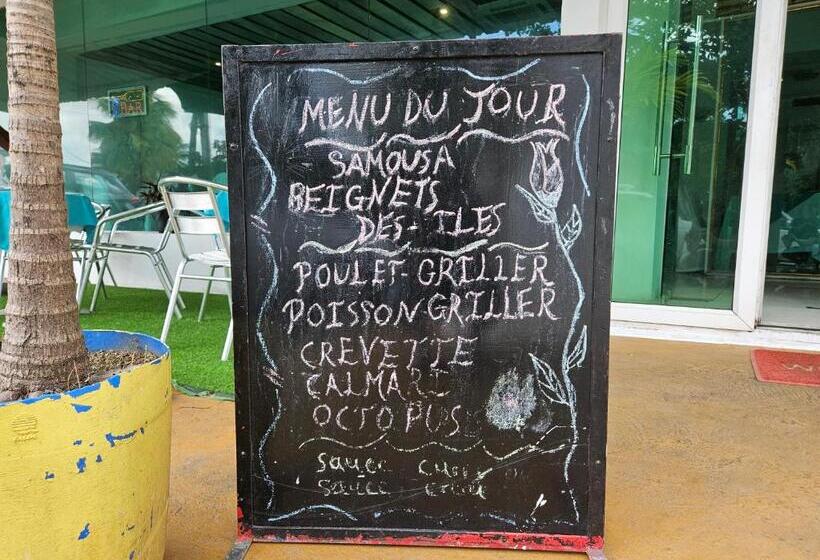 BAR
MENU DU JOUR
SAMOUSA
BEIGNETS
DES-ILES
POULET-GRILLER
POISSON GRILLER
CREVETTE
CALMAR
OCTOPUS
Sauce
Sauce